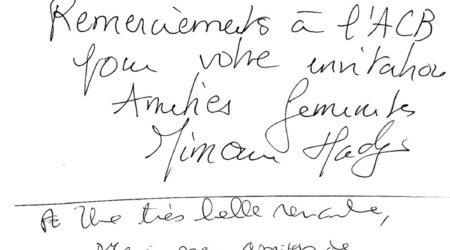 Remerciements à l'ACB
pour votre invitation
Amitiés féministes
Mimouna Hadj
Une très belle rencontre,